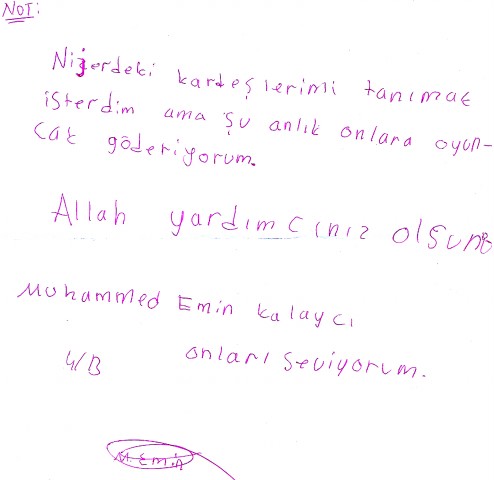 NOT:
Nijerdeki kardeşlerimi tanımak
isterdim ama şu anlık onlara oyun-
cak göderiyorum.
Allah yardımcınız olsun
Muhammed Emin Kalaycı
4/B onları seviyorum.
M. Emin